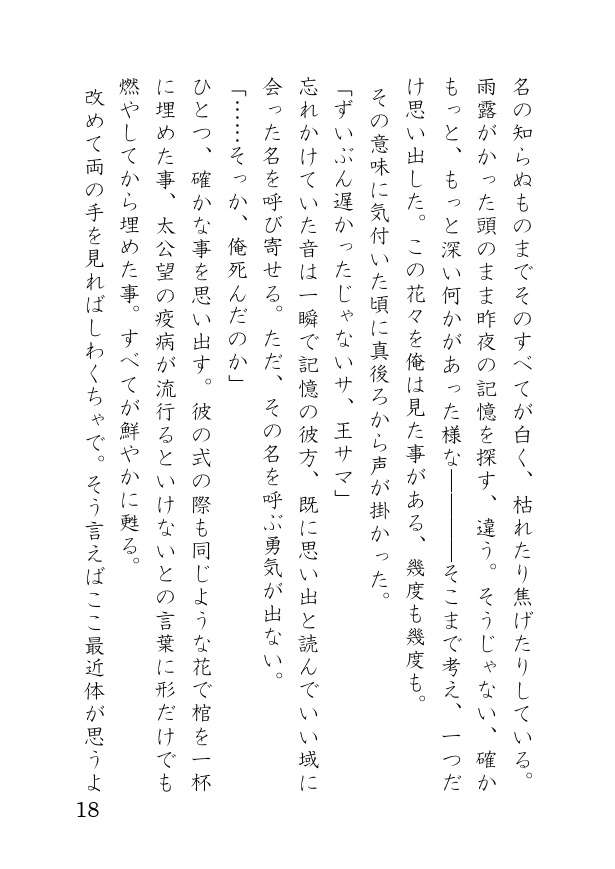 名の知らぬものまでそのすべてが白く、枯れたり焦げたりしている。
雨露がかった頭のまま昨夜の記憶を探す、違う。そうじゃない、確か
もっと、もっと深い何かがあった様な――――そこまで考え、一つだ
け思い出した。この花々を俺は見た事がある、幾度も幾度も。
その意味に気付いた頃に真後ろから声が掛かった。
「ずいぶん遅かったじゃないサ、王サマ」
忘れかけていた音は一瞬で記憶の彼方、既に思い出と読んでいい域に
会った名を呼び寄せる。ただ、その名を呼ぶ勇気が出ない。
「……そっか、俺死んだのか」
ひとつ、確かな事を思い出す。彼の式の際も同じような花で棺を一杯
に埋めた事、太公望の疫病が流行るといけないとの言葉に形だけでも
燃やしてから埋めた事。すべてが鮮やかに甦る。
改めて両の手を見ればしわくちゃで。そう言えばここ最近体が思うよ
18